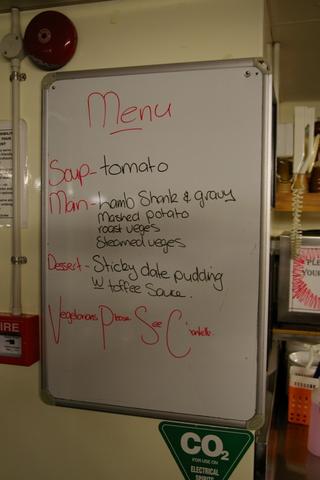 Menu
Soup - tomato
Main - Lamb Shank & gravy
Mashed potato
roast veges
Steamed veges
Dessert - Sticky date pudding
W toffee Sauce.
Vegetarians Please See Chantelle.
FIRE
CO2
FOR USE ON
ELECTRICAL
SPIRITS